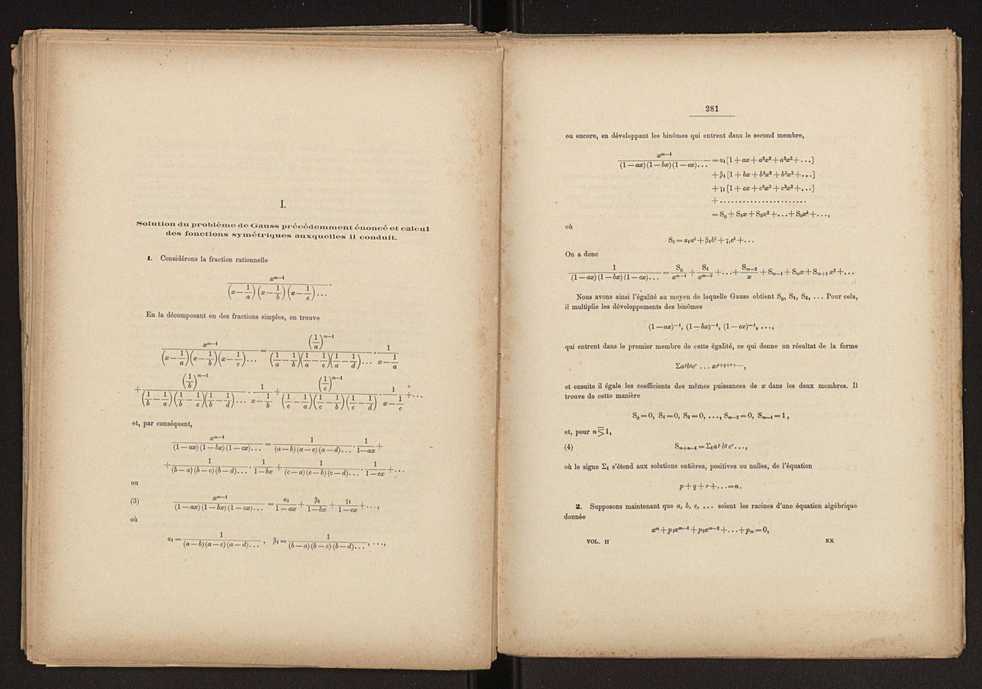 I.
Solution du problème de Gauss précédemment énoncé et calcul
des fonctions symétriques auxquelles il conduit.
1. Considérons la fraction rationnelle
x^{m—1} / (x — 1/a) (x — 1/b) (x — 1/c) ... .
En la décomposant en des fractions simples, on trouve
x^{m—1} / (x — 1/a)(x — 1/b)(x — 1/c) ... = (1/a)^{m—1} / (1/a — 1/b)(1/a — 1/c)(1/a — 1/d) ... · 1 / (x — 1/a)
+ (1/b)^{m—1} / (1/b — 1/a)(1/b — 1/c)(1/b — 1/d) ... · 1 / (x — 1/b) + (1/c)^{m—1} / (1/c — 1/a)(1/c — 1/b)(1/c — 1/d) ... · 1 / (x — 1/c) + ...
et, par conséquent,
x^{m—1} / (1 — ax) (1 — bx) (1 — cx) ... = 1 / (a — b) (a — c) (a — d) ... · 1 / (1—ax) +
+ 1 / (b — a) (b — c) (b — d) ... · 1 / (1—bx) + 1 / (c — a) (c — b) (c — d) ... · 1 / (1—cx) + ...
ou
(3) x^{m—1} / (1 — ax) (1 — bx) (1 — cx) ... = α₁ / (1 — ax) + β₁ / (1—bx) + γ₁ / (1 — cx) + ...,
où
α₁ = 1 / (a — b) (a — c) (a — d) ... , β₁ = 1 / (b — a) (b — c) (b — d) ... , ...,
281
ou encore, en développant les binômes qui entrent dans le second membre,
x^{m—1} / (1 — ax) (1 — bx) (1 — cx) ... = α₁ [1 + ax + a²x² + a³x³ + ...]
+ β₁ [1 + bx + b²x² + b³x³ + ...]
+ γ₁ [1 + cx + c²x² + c³x³ + ...]
+ ........................
= S₀ + S₁x + S₂x² + ... + Sₜxᵗ + ...,
où
Sₜ = α₁aᵗ + β₁bᵗ + γ₁cᵗ + ...
On a donc
1 / (1 — ax) (1 — bx) (1 — cx) ... = S₀ / x^{m—1} + S₁ / x^{m—2} + ... + S_{m—2} / x + S_{m—1} + S_m x + S_{m+1} x² + ...
Nous avons ainsi l'égalité au moyen de laquelle Gauss obtient S₀, S₁, S₂, ... Pour cela,
il multiplie les développements des binômes
(1 — ax)^{—1}, (1 — bx)^{—1}, (1 — cx)^{—1}, ...,
qui entrent dans le premier membre de cette égalité, ce qui donne un résultat de la forme
Σa^p b^q c^r ... x^{p+q+r+...},
et ensuite il égale les coefficients des mêmes puissances de x dans les deux membres. Il
trouve de cette manière
S₀ = 0, S₁ = 0, S₂ = 0, ..., S_{m—2} = 0, S_{m—1} = 1,
et, pour n ≧ 1,
(4) S_{m+n—1} = Σ₁a^p b^q c^r ...,
où le signe Σ₁ s'étend aux solutions entières, positives ou nulles, de l'équation
p + q + r + ... = n.
2. Supposons maintenant que a, b, c, ... soient les racines d'une équation algébrique
donnée
x^m + p₁x^{m—1} + p₂x^{m—2} + ... + p_m = 0,
VOL. II KK